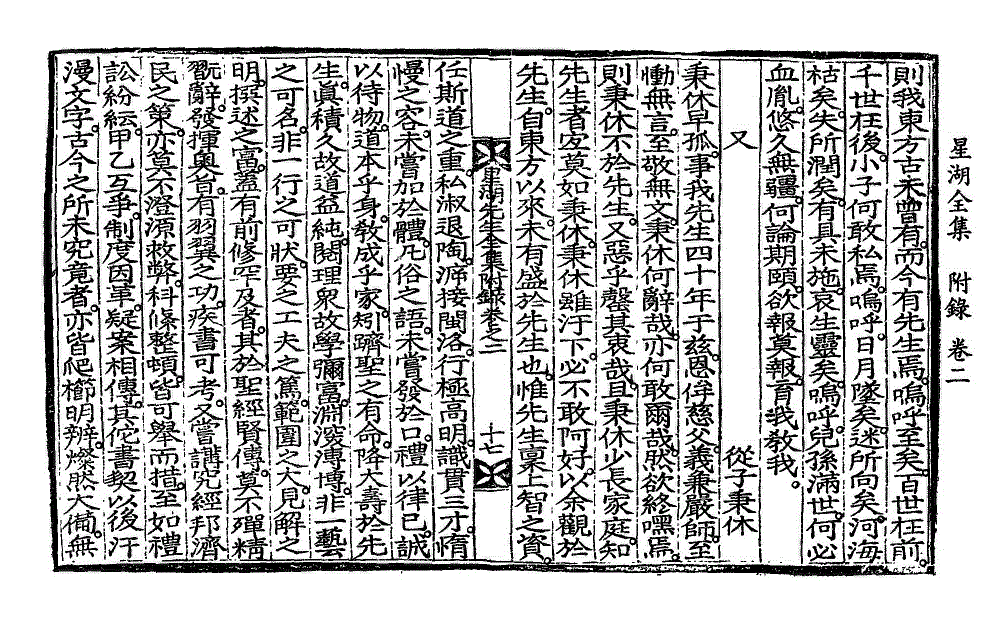 星湖全集　附錄　卷二
則我東方古未曾有而今有先生焉嗚呼至矣百世在前
千世在後小子何敢私焉嗚呼日月墜矣迷所向矣河海
枯矣失所潤矣有具未施哀生靈矣嗚呼兒孫滿世何必
血胤悠久無疆何論期頤欲報莫報育我敎我
又　從子秉休
秉休早孤事我先生四十年于玆恩侔慈父義兼嚴師至
慟無言至敬無文秉休何辭哉亦何敢爾哉然欲終嘿焉
則秉休不於先生又惡乎罄其衷哉且秉休少長家庭知
先生者宜莫如秉休秉休雖汙下必不敢阿好以余觀於
先生自東方以來未有盛於先生也惟先生稟上智之資
星湖先生全集附錄卷之二　十七
任斯道之重私淑退陶溯接閩洛行極高明識貫三才惰
慢之容未嘗加於體凡俗之語未嘗發於口禮以律己誠
以待物道本乎身敎成乎家矧躋聖之有命降大壽於先
生眞積久故道益純閱理衆故學彌富淵深溥博非一藝
之可名非一行之可狀要之工夫之篤範圍之大見解之
明撰述之富蓋有前修罕及者其於聖經賢傳莫不殫精
翫辭發揮奧旨有羽翼之功疾書可考又嘗講究經邦濟
民之策亦莫不澄源救弊科條整頓皆可擧而措至如禮
訟紛紜甲乙互爭制度因革疑案相傳其佗書契以後汗
漫文字古今之所未究竟者亦皆爬櫛明辨燦然大備無